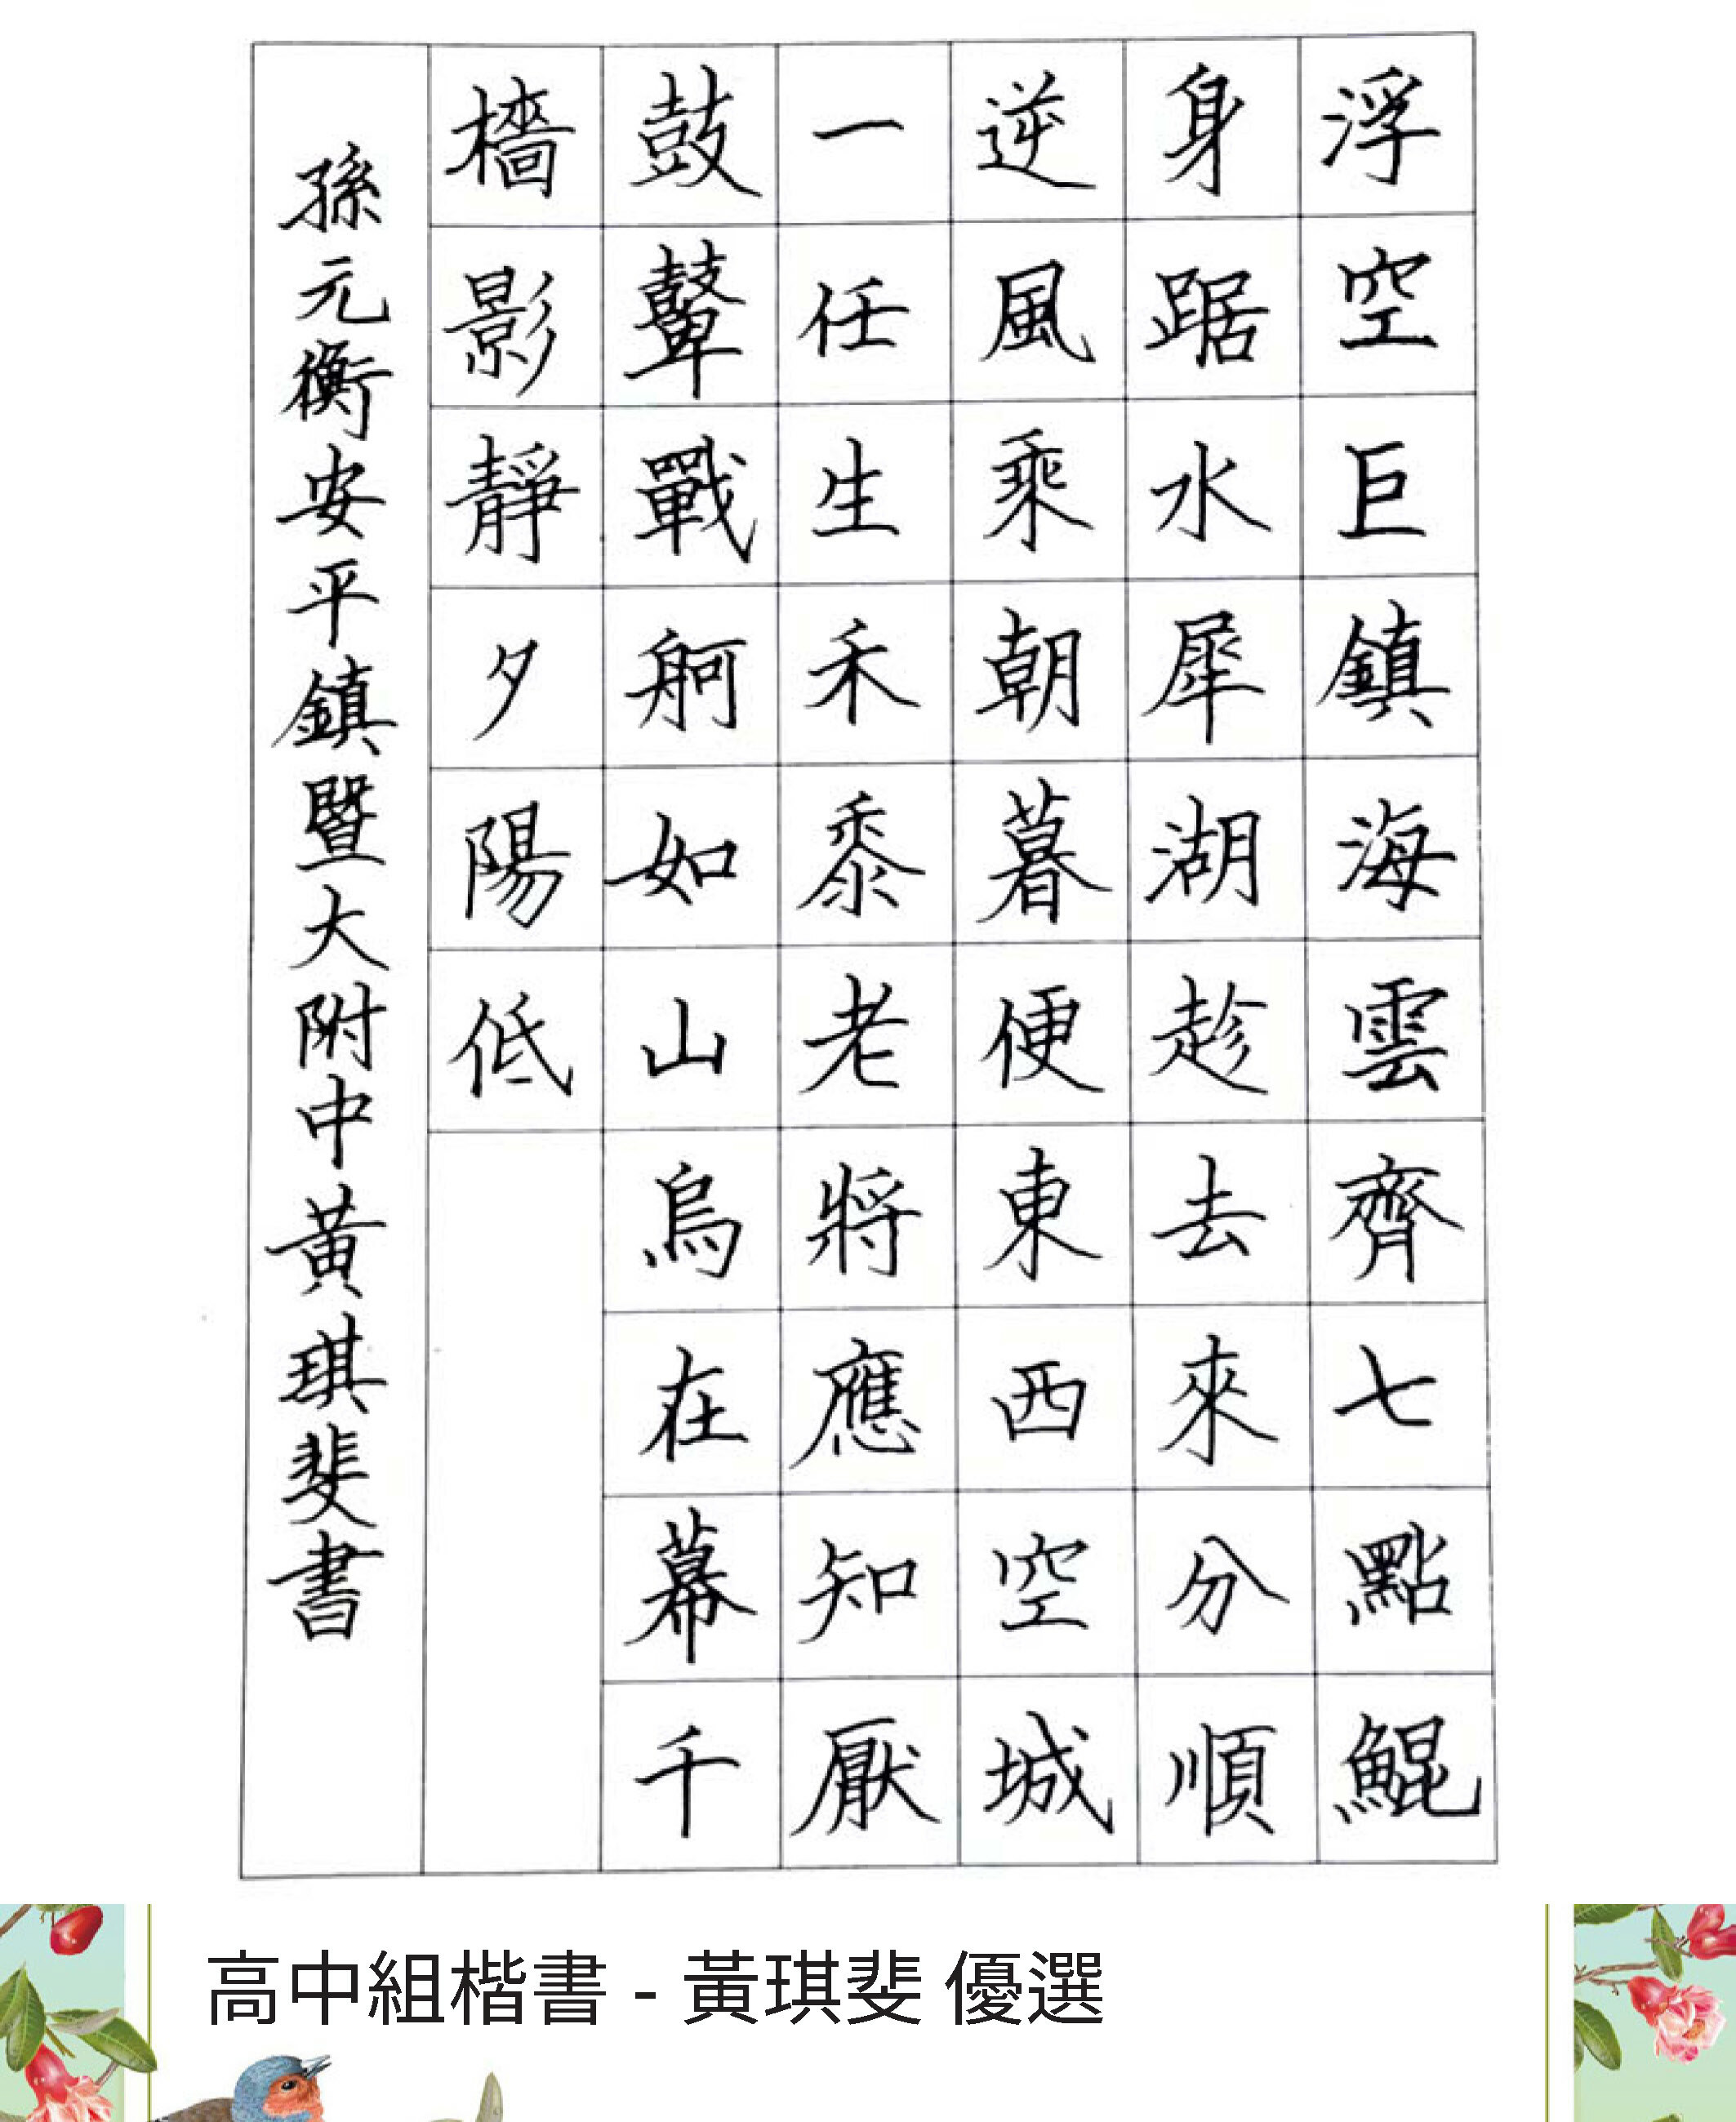 浮空巨鎮海雲齊七點鯤
身踞水犀湖趁去來分順
逆風乘朝暮便東西空城
一任生禾黍老將應知厭
鼓鼙戰舸如山烏在幕千
檣影靜夕陽低
孫元衡安平鎮暨大附中黃琪斐書
高中組楷書 - 黃琪斐 優選